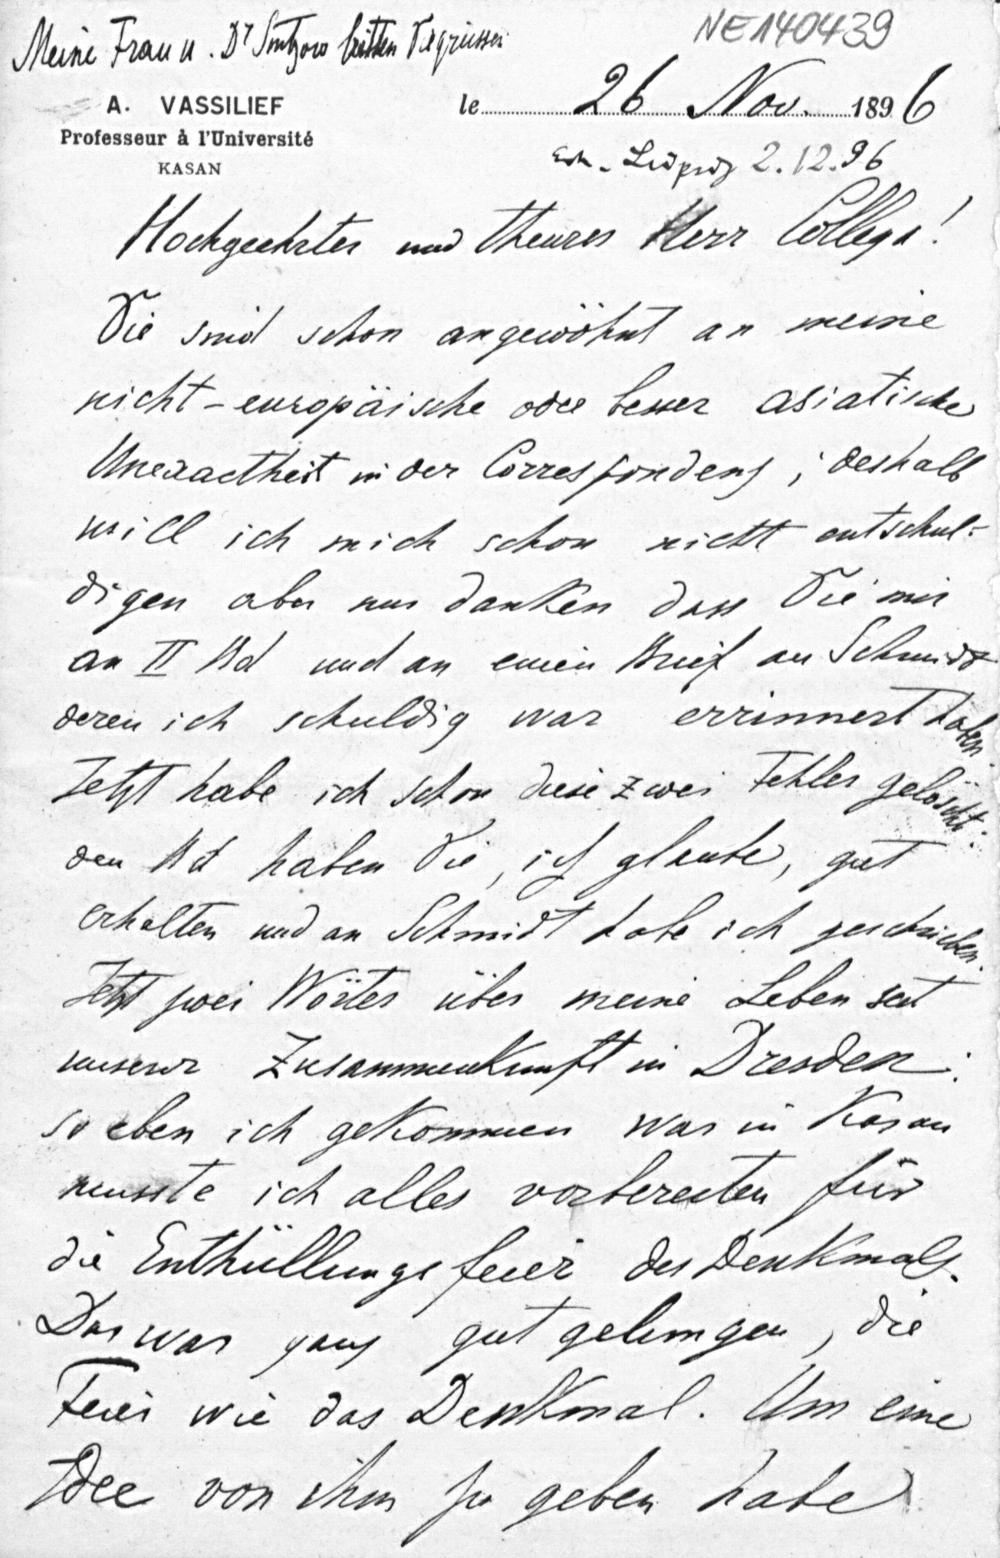 NE140439
Meine Frau u. Dr Sintzow bitten Sie grüssen
A. VASSILIEF
Professeur à l'Université
KASAN
le 26 Nov. 1896
Erh. Leipzig 2.12.96
Hochgeehrter und theurer Herr College!
Sie sind schon angewöhnt an meine
nicht-europäische oder besser asiatische
Unexactheit in der Correspondenz; deshalb
will ich mich schon nicht entschul-
digen aber nur danken dass Sie mir
an II Bd und an einen Brief an Schmidt
deren ich schuldig war errinnert haben.
Jetzt habe ich schon diese zwei Fehler gelöscht:
den Bd haben Sie, ich glaube, gut
erhalten und an Schmidt habe ich geschrieben.
Jetzt zwei Wörter über meine Leben seit
unserer Zusammenkunft in Dresden:
so eben ich gekommen war in Kasan
musste ich alles vorbereiten für
die Enthüllungsfeier des Denkmals.
Das war ganz gut gelungen, die
Feier wie das Denkmal. Um eine
Idee von ihm zu geben habe